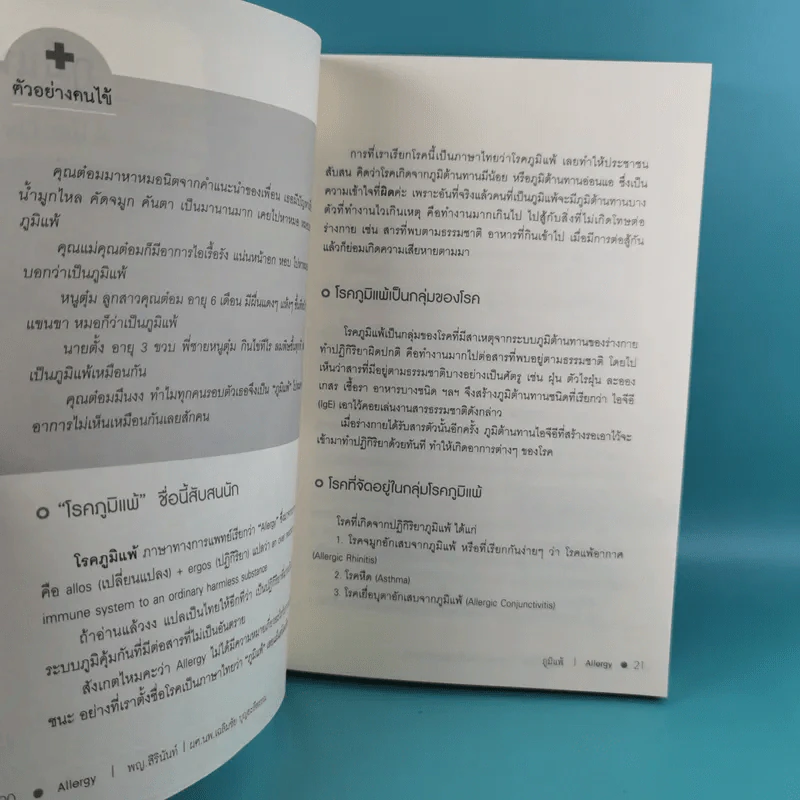 ตัวอย่างคนไข้
คุณต๋อมมาหาหมอนิตจากคำแนะนำของเพื่อน เธอมีปัญหา
น้ำมูกไหล คัดจมูก คันตา เป็นมานานมาก เคยไปหาหมอ
ภูมิแพ้
คุณแม่คุณต๋อมก็มีอาการไอเรื้อรัง แน่นหน้าอก หอบ
บอกว่าเป็นภูมิแพ้
หนูตุ๋ม ลูกสาวคุณต๋อม อายุ 6 เดือน มีผื่นแดงๆ
แขนขา หมอก็ว่าเป็นภูมิแพ้
นายตั้ง อายุ 3 ขวบ พี่ชายหนูตุ๋ม กินไข่ทีไร
เป็นภูมิแพ้เหมือนกัน
คุณต๋อมมึนงง ทำไมทุกคนรอบตัวเธอจึงเป็น "ภูมิแพ้"
อาการไม่เห็นเหมือนกันเลยสักคน
"โรคภูมิแพ้" ชื่อนี้สับสนนัก
โรคภูมิแพ้ ภาษาทางการแพทย์เรียกว่า "Allergy"
คือ allos (เปลี่ยนแปลง) + ergos (ปฏิกิริยา) แปลว่า an over
immune system to an ordinary harmless substance
ถ้าอ่านแล้วงง แปลเป็นไทยให้อีกทีว่า
ระบบภูมิคุ้มกันที่มีต่อสารที่ไม่เป็นอันตราย
สังเกตไหมคะว่า Allergy ไม่ได้มีความหมาย
ชนะ อย่างที่เราตั้งชื่อโรคเป็นภาษาไทยว่า "ภูมิแพ้"
Allergy | พญ.สิรินันท์ | ผศ.นพ.เฉลิมชัย
การที่เราเรียกโรคนี้เป็นภาษาไทยว่าโรคภูมิแพ้ เลยทำให้ประชาชน
สับสน คิดว่าโรคเกิดจากภูมิต้านทานมีน้อย หรือภูมิต้านทานอ่อนแอ ซึ่งเป็น
ความเข้าใจที่ผิดค่ะ เพราะอันที่จริงแล้วคนที่เป็นภูมิแพ้จะมีภูมิต้านทานบาง
ตัวที่ทำงานไวเกินเหตุ คือทำงานมากเกินไป ไปสู้กับสิ่งที่ไม่เกิดโทษต่อ
ร่างกาย เช่น สารที่พบตามธรรมชาติ อาหารที่กินเข้าไป เมื่อมีการต่อสู้กัน
แล้วก็ย่อมเกิดความเสียหายตามมา
โรคภูมิแพ้เป็นกลุ่มของโรค
โรคภูมิแพ้เป็นกลุ่มของโรคที่มีสาเหตุจากระบบภูมิต้านทานของร่างกาย
ทำปฏิกิริยาผิดปกติ คือทำงานมากไปต่อสารที่พบอยู่ตามธรรมชาติ โดยไป
เห็นว่าสารที่มีอยู่ตามธรรมชาติบางอย่างเป็นศัตรู เช่น ฝุ่น ตัวไรฝุ่น ละออง
เกสร เชื้อรา อาหารบางชนิด ฯลฯ จึงสร้างภูมิต้านทานชนิดที่เรียกว่า ไอจีอี
(IgE) เอาไว้คอยเล่นงานสารธรรมชาติดังกล่าว
เมื่อร่างกายได้รับสารตัวนั้นอีกครั้ง ภูมิต้านทานไอจีอีที่สร้างรอเอาไว้จะ
เข้ามาทำปฏิกิริยาด้วยทันที ทำให้เกิดอาการต่างๆ ของโรค
โรคที่จัดอยู่ในกลุ่มโรคภูมิแพ้
โรคที่เกิดจากปฏิกิริยาภูมิแพ้ ได้แก่
1. โรคจมูกอักเสบจากภูมิแพ้ หรือที่เรียกกันง่ายๆ ว่า โรคแพ้อากาศ
(Allergic Rhinitis)
2. โรคหืด (Asthma)
3. โรคเยื่อบุตาอักเสบจากภูมิแพ้ (Allergic Conjunctivitis)
ภูมิแพ้ | Allergy ● 21